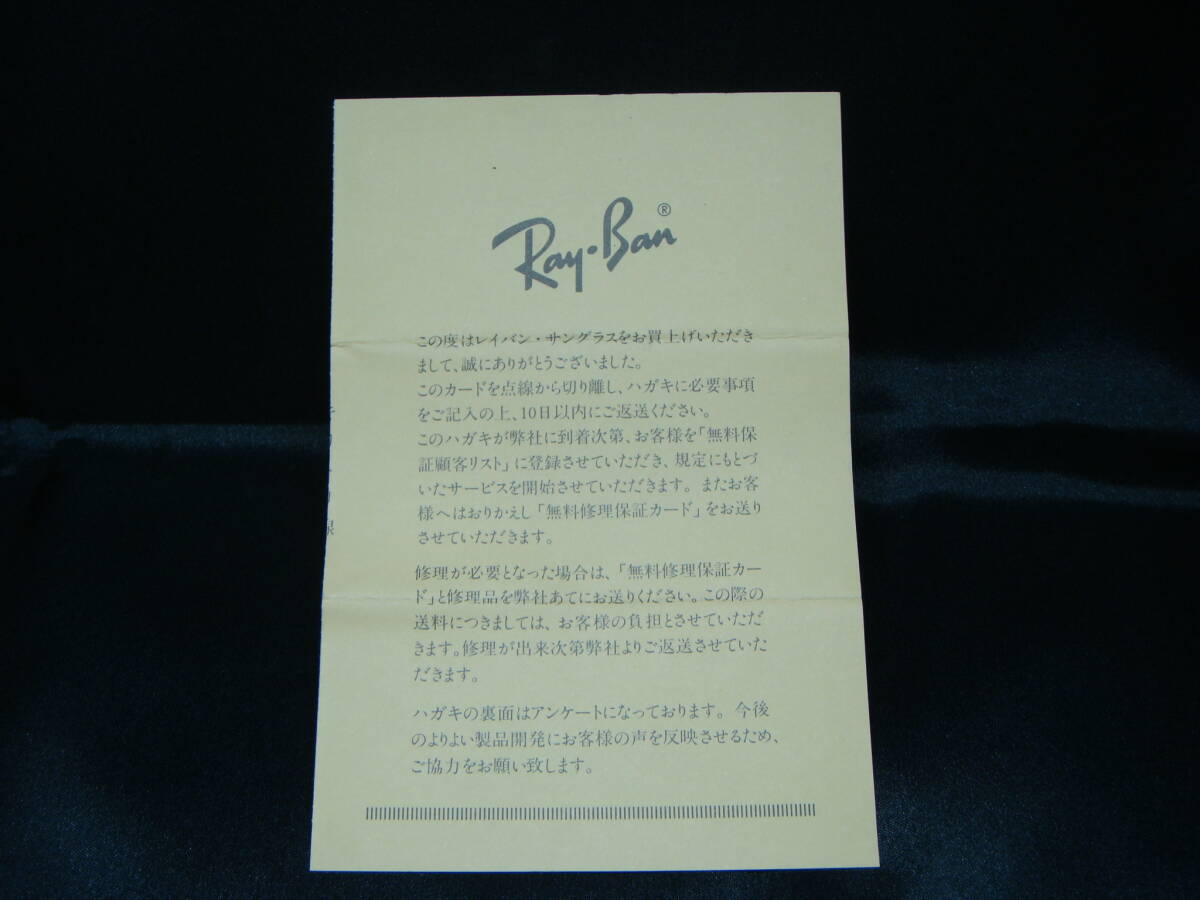 Ray-Ban®
この度はレイバン・サングラスをお買上げいただき
まして、誠にありがとうございました。
このカードを点線から切り離し、ハガキに必要事項
をご記入の上、10日以内にご返送ください。
このハガキが弊社に到着次第、お客様を「無料保
証顧客リスト」に登録させていただき、規定にもとづ
いたサービスを開始させていただきます。またお客
様へはおりかえし「無料修理保証カード」をお送り
させていただきます。
修理が必要となった場合は、「無料修理保証カー
ド」と修理品を弊社あてにお送りください。この際の
送料につきましては、お客様の負担とさせていただ
きます。修理が出来次第弊社よりご返送させていた
だきます。
ハガキの裏面はアンケートになっております。今後
のよりよい製品開発にお客様の声を反映させるため、
ご協力をお願い致します。